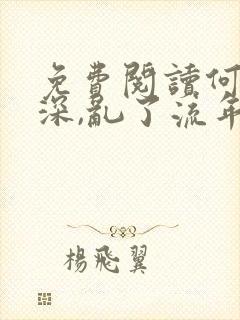 免費閱讀何
深,亂了流年
楊飛翼